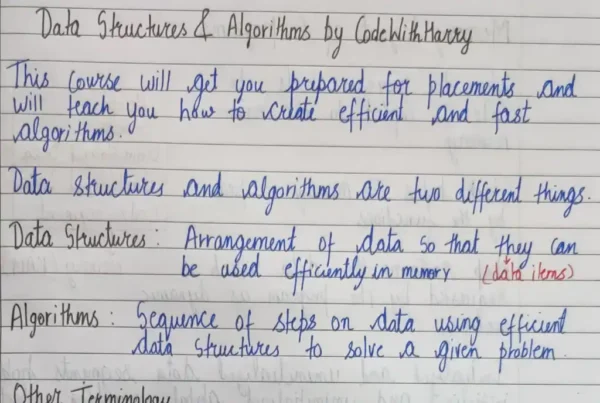 Data Structures & Algorithms by CodeWithHarry
This course will get you prepared for placements and
will teach you how to create efficient and fast
algorithms.
Data structures and algorithms are two different things.
Data Structures : Arrangement of data so that they can
be used efficiently in memory (data items)
Algorithms : Sequence of steps on data using efficient
data structures to solve a given problem.
Other Terminology